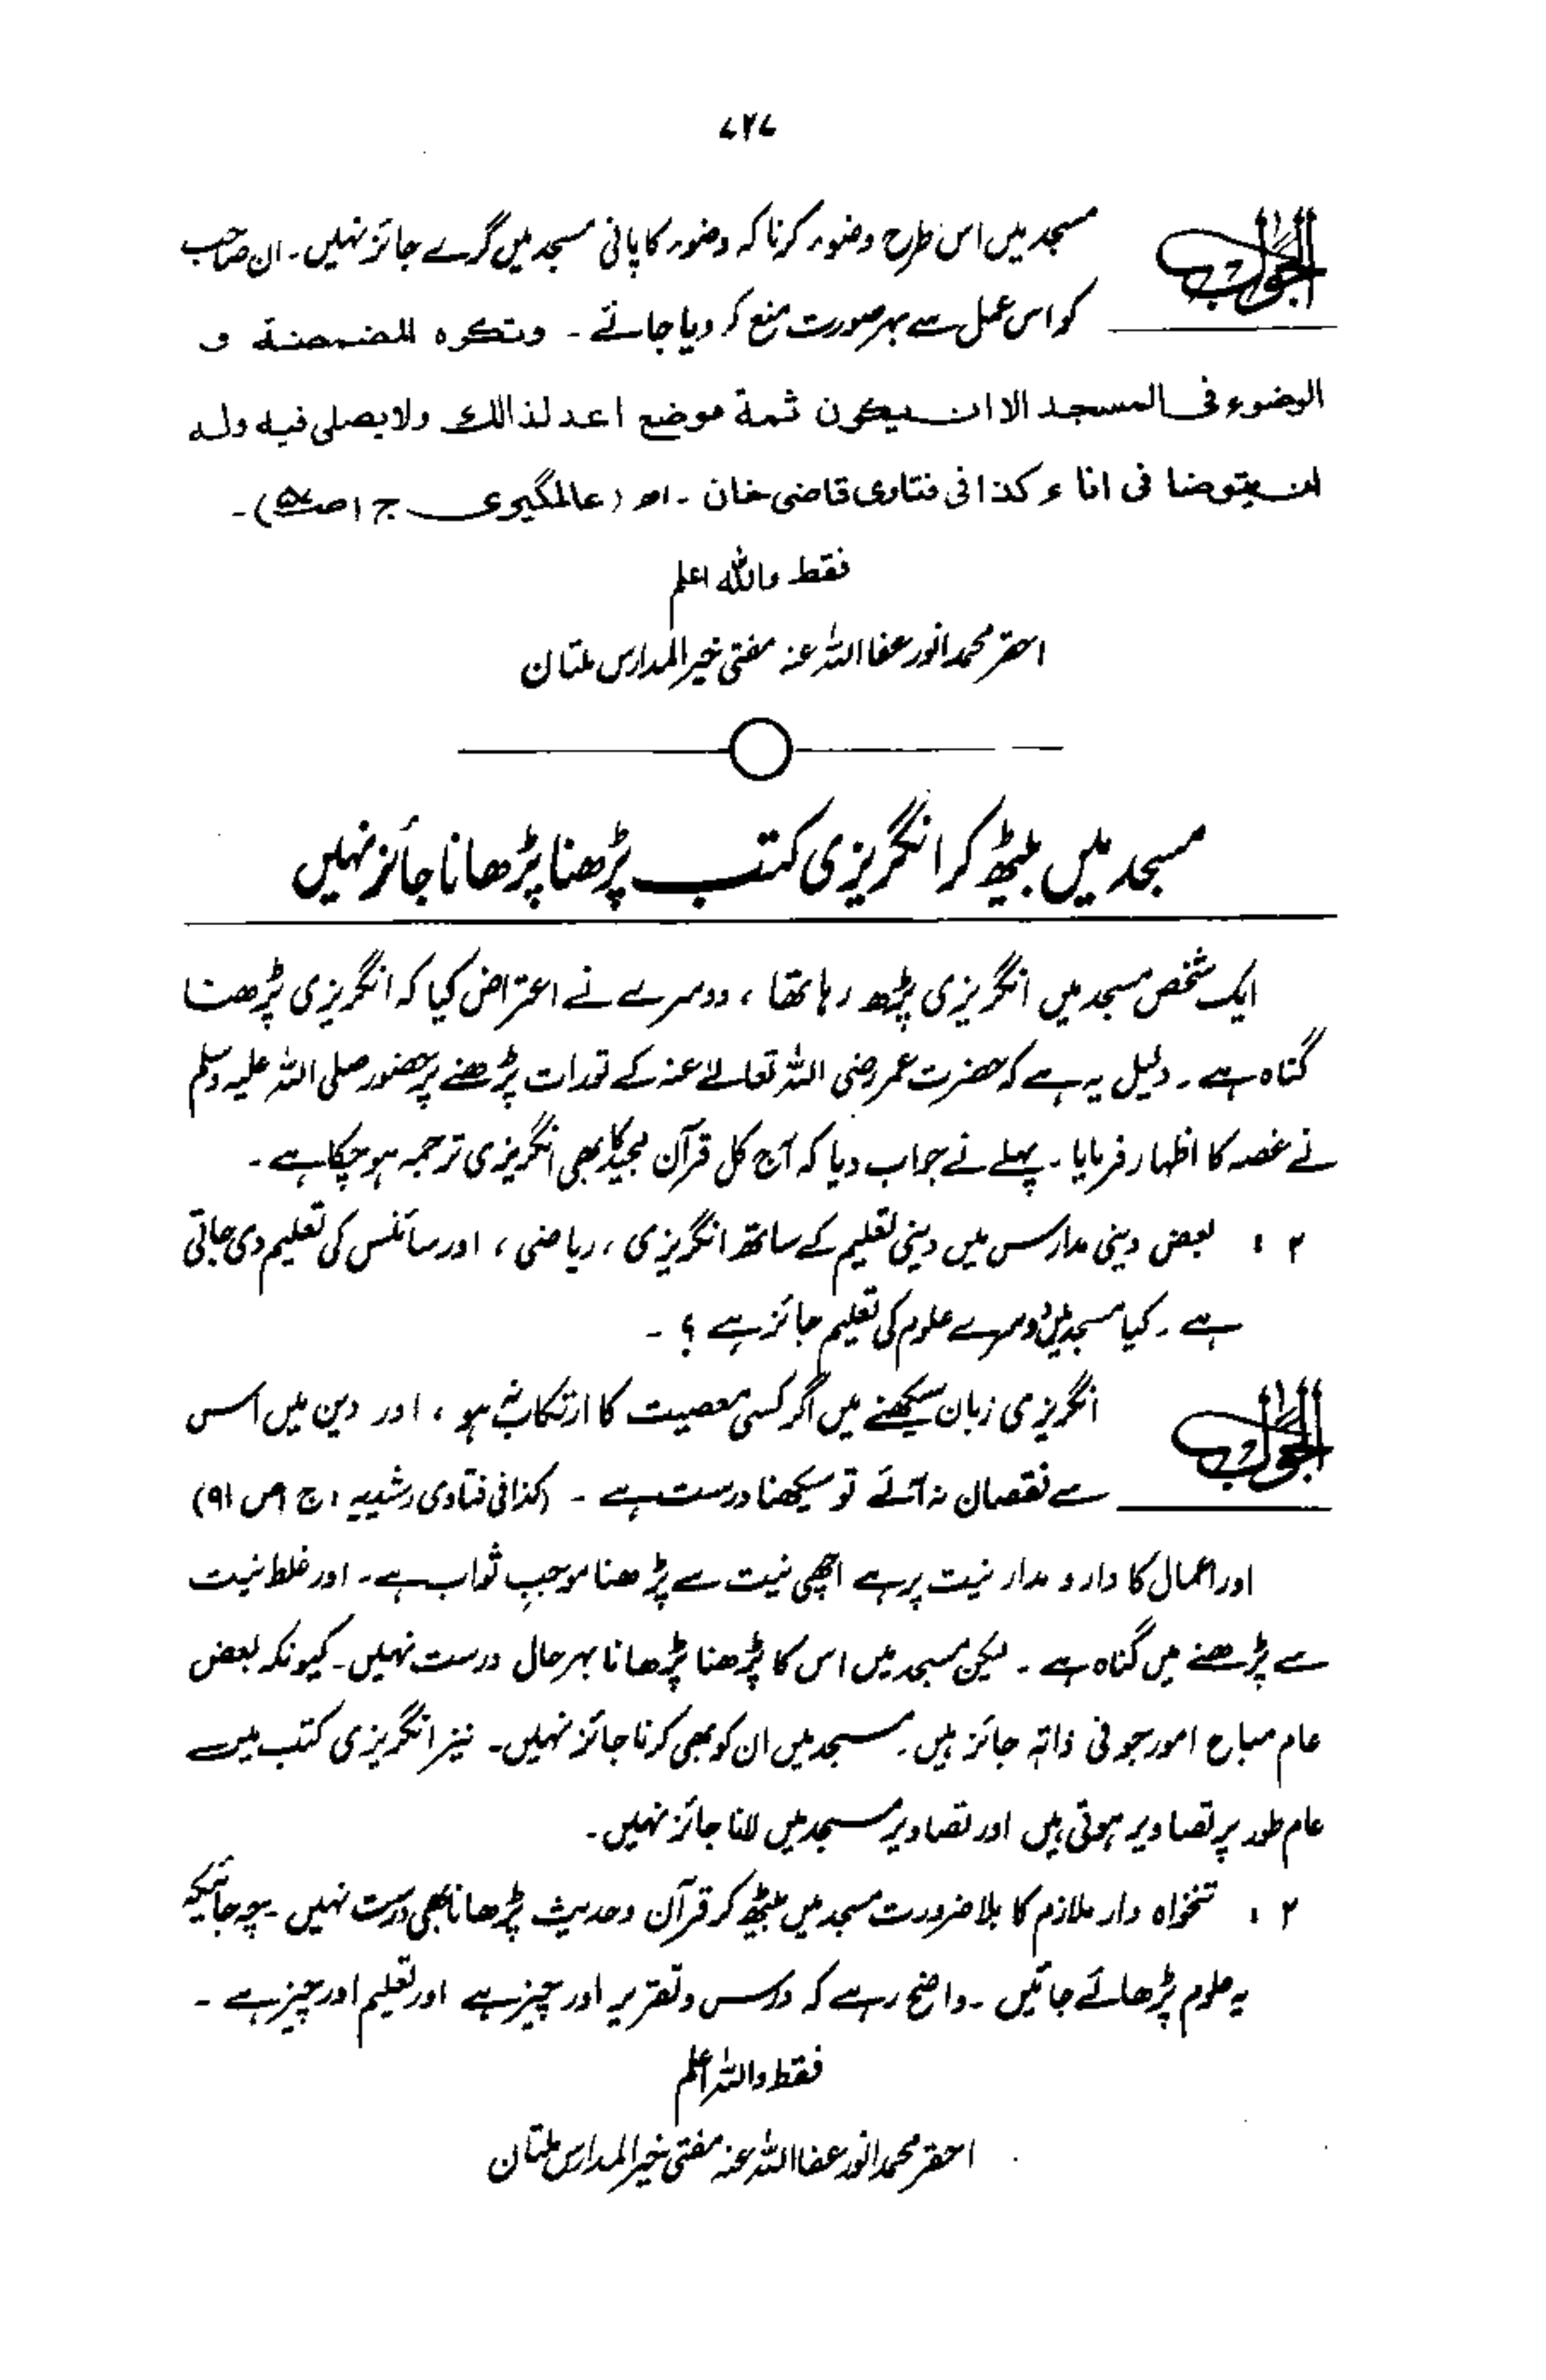 ۷۲۷
الجواب
مسجد میں اس طرح وضوء کرنا کہ وضوء کا پانی مسجد میں گرے جائز نہیں۔ ان صاحب
کو اس عمل سے بہر صورت منع کر دیا جائے۔ وتکره المضمضة و
الوضوء فی المسجد الا ان یکون ثمة موضع اعد لذالک ولا یصلی فیه وله
ان یتوضا فی اناء کذا فی فتاوی قاضی خان ۔ اھ (عالمگیری ج ۱ ص)۔
فقط واللہ اعلم
احقر محمد انور عفا اللہ عنہ مفتی خیر المدارس ملتان
مسجد میں بیٹھ کر انگریزی کتب پڑھنا پڑھانا جائز نہیں
ایک شخص مسجد میں انگریزی پڑھ رہا تھا ، دوسرے نے اعتراض کیا کہ انگریزی پڑھنا
گناہ ہے۔ دلیل یہ ہے کہ حضرت عمر رضی اللہ تعالےٰ عنہ کے تورات پڑھنے پر حضور صلی اللہ علیہ وسلم
نے غصہ کا اظہار فرمایا۔ پہلے نے جواب دیا کہ آج کل قرآن مجید کا بھی انگریزی ترجمہ ہو چکا ہے۔
۲ : بعض دینی مدارس میں دینی تعلیم کے ساتھ انگریزی ، ریاضی ، اور سائنس کی تعلیم دی جاتی
ہے۔ کیا مسجد میں دوسرے علوم کی تعلیم جائز ہے ؟ ۔
الجواب
انگریزی زبان سیکھنے میں اگر کسی معصیت کا ارتکاب نہ ہو ، اور دین میں اس
سے نقصان نہ آئے تو سیکھنا درست ہے ۔ (کذا فی فتاوی رشیدیہ ، ج ۱ ص ۹۱)
اور اعمال کا دار و مدار نیت پر ہے اچھی نیت سے پڑھنا موجبِ ثواب ہے۔ اور غلط نیت
سے پڑھنے میں گناہ ہے ۔ لیکن مسجد میں اس کا پڑھنا پڑھانا بہر حال درست نہیں۔ کیونکہ بعض
عام مباح امور جو فی ذاتہٖ جائز ہیں۔ مسجد میں ان کو بھی کرنا جائز نہیں۔ نیز انگریزی کتب میں
عام طور پر تصاویر ہوتی ہیں اور تصاویر مسجد میں لانا جائز نہیں۔
۲ : تنخواہ دار ملازم کا بلا ضرورت مسجد میں بیٹھ کر قرآن و حدیث پڑھانا بھی درست نہیں۔ چہ جائیکہ
یہ علوم پڑھائے جائیں۔ واضح رہے کہ درس و تقریر اور چیز ہے اور تعلیم اور چیز ہے ۔
فقط واللہ اعلم
احقر محمد انور عفا اللہ عنہ مفتی خیر المدارس ملتان